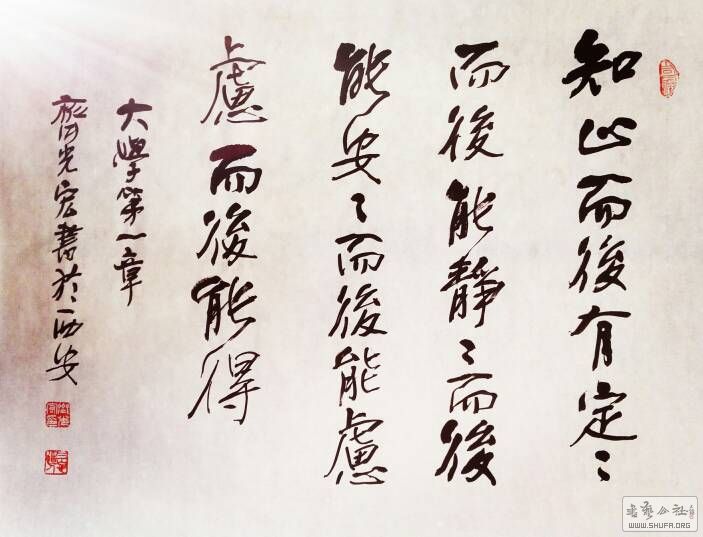 知止而後有定〻
而後能靜〻而後
能安〻而後能慮
慮而後能得
大學第一章
齊光宏書於西安
書藝公社
WWW.SHUFA.ORG